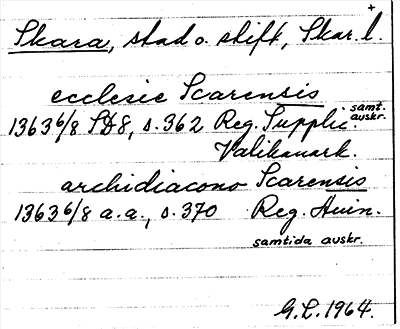 +
Skara, stad o. stift, Skar. l.
ecclesie Scarensis
1363 6/8 SD8, s. 362 Reg. Supplic. samt. avskr.
Vatikanark.
archidiacono Scarensis
1363 6/8 a.a., s. 370 Reg. Avin.
samtida avskr.
G.L. 1964.